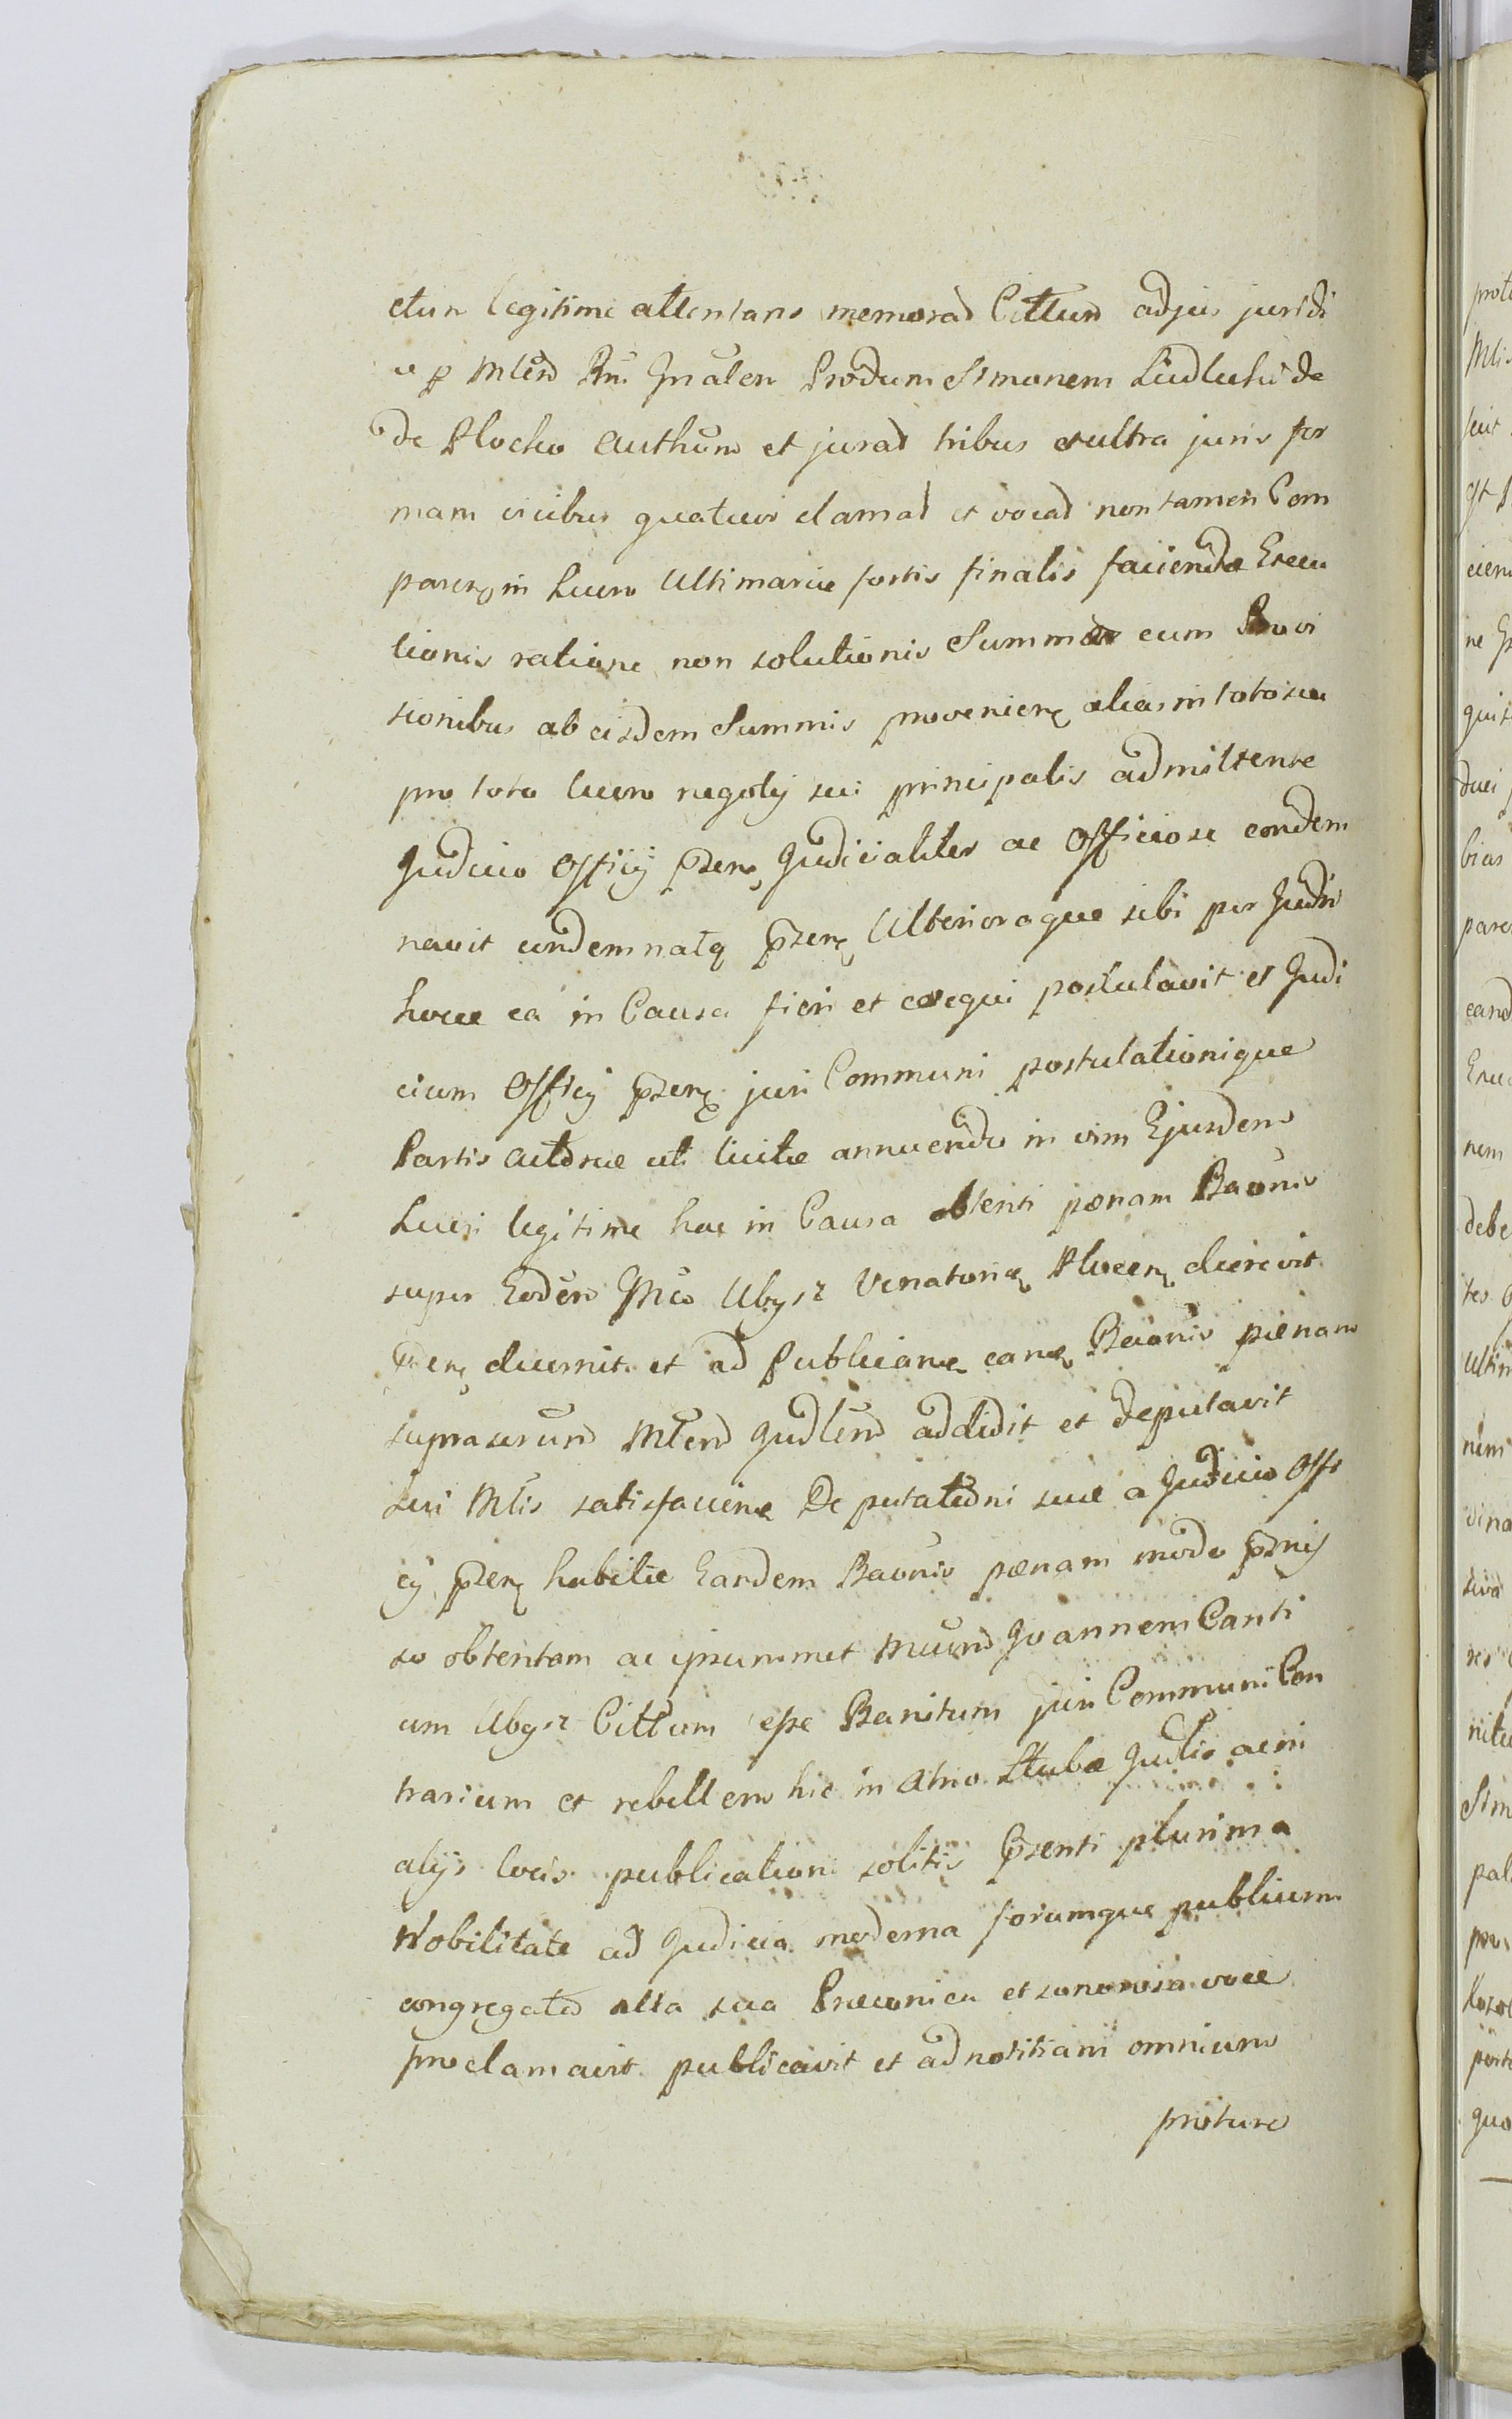 ctun legitime attentans memorad Cittum adjus juridi
ce p Mlend Rni Gnalen Produm Simonem Ludluski de
de Plocko Authum et jurad tribus et ultra juris for
mam vicibus quatuor clamad et vocad non tamen Com
paren in Lucro Ultimariæ sortis finalis faciendæ Execu
tionis ratione non solutionis Summæ cum Provi
sionibus ab eisdem Summis provenien alias in toto seu
pro toto lucro negotij sui principalis admittente
Judicio Officij pzen, Judicialiter ac Officiose condem
navit condemnatq pzen Ulterioraque sibi per Judici
hocce ea in Causa fieri et exequi postulavit et Judi
cium Officij pzen juri Communi postulationique
Partis Actoreæ uti licitæ annuendo in vim Ejusdem
Lucri legitime hac in Causa obtenti pœnam Baonis
super Eodem Gnco Ubysz Venatorie Plocen decrevit
pzen decernit et ad Publican eand Baonis pœnam
suprascrund Mlend Judlend addidit et deputavit
Qui Mlis satisfacien Deputationi suæ a Judicio Offi
cij pzen habitæ Eandem Baonis pœnam modo pzmis
so obtentam ac ipsummet Mcund Joannem Canti
um Ubysz Cittum esse Banitum juri Communi Con
trarium et rebellem hic in Atrio Stubæ Judlis ac in
alijs locis publicationi solitis pzenti plurima
Nobilitate ad Judicia moderna forumque publicum
congregata alta sua Præconica et sonorosa voce
proclamavit publicavit et ad notitiam omnium